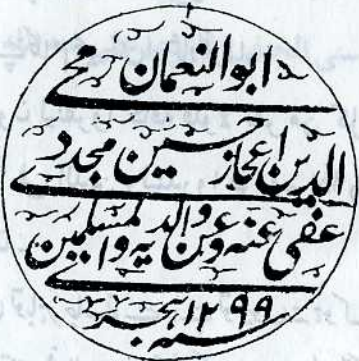 ابو النعمان محی
الدین اعجاز حسین مجددی
عفی عنہ وعن والدیہ والمسلمین
سنہ ۱۲۹۹ ہجری